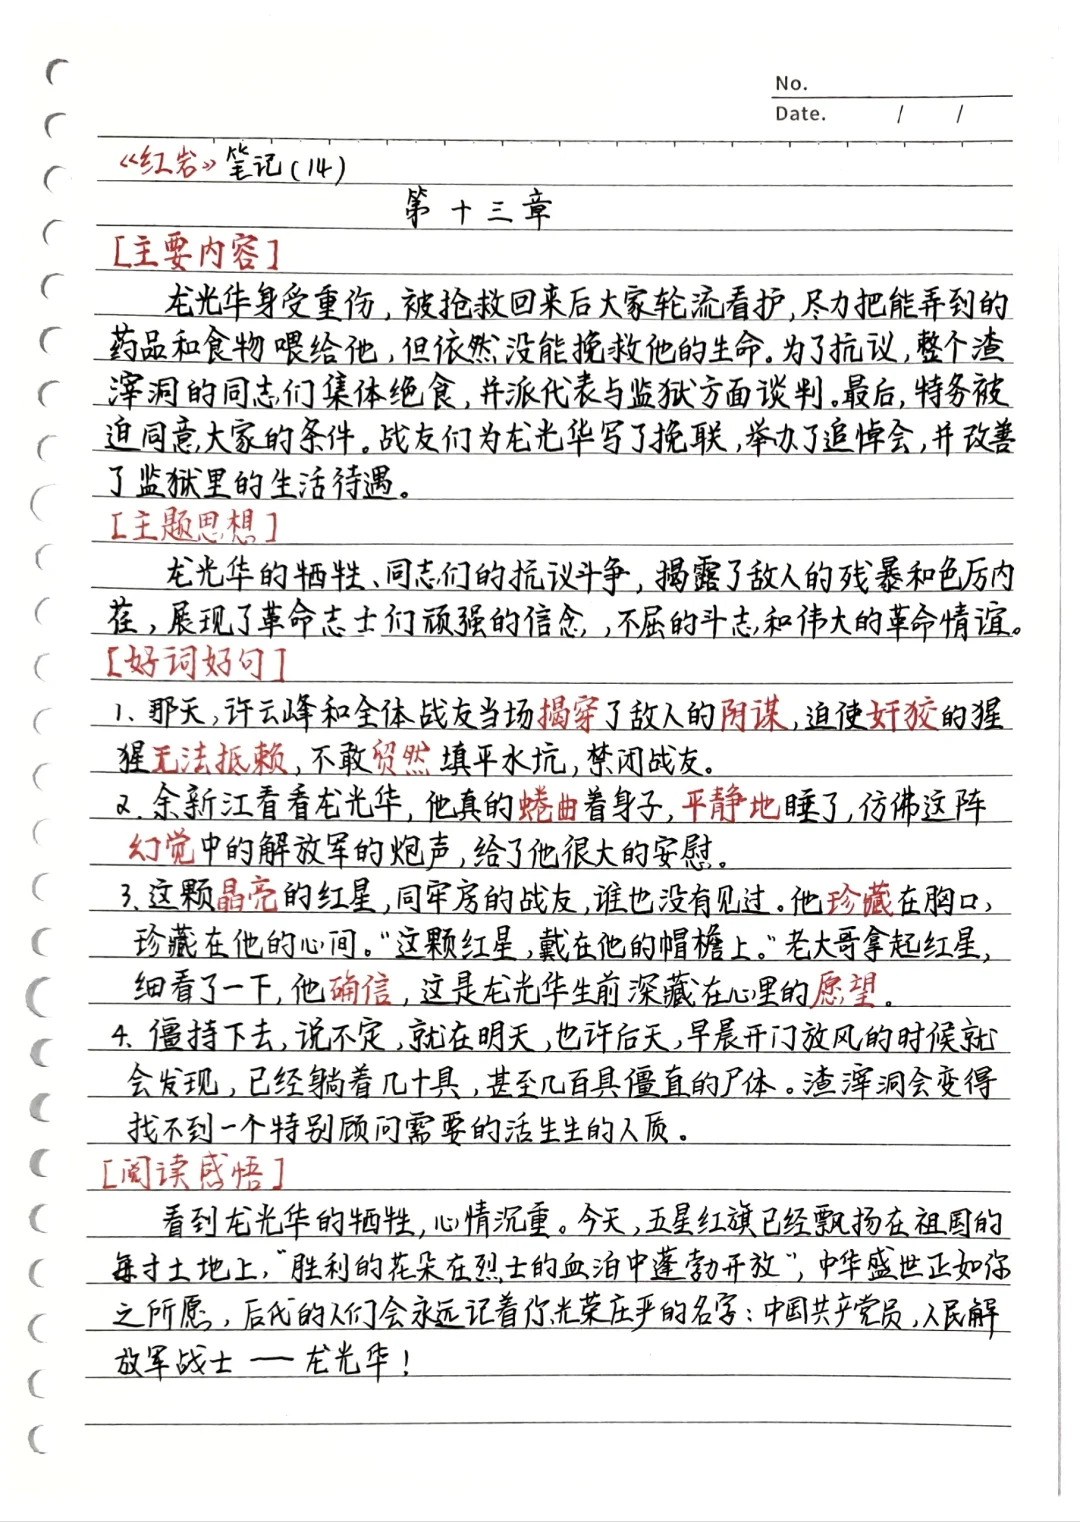 No.
Date. / /
《红岩》笔记(14)
第十三章
[主要内容]
龙光华身受重伤,被抢救回来后大家轮流看护,尽力把能弄到的
药品和食物喂给他,但依然没能挽救他的生命。为了抗议,整个渣
滓洞的同志们集体绝食,并派代表与监狱方面谈判。最后,特务被
迫同意大家的条件。战友们为龙光华写了挽联,举办了追悼会,并改善
了监狱里的生活待遇。
[主题思想]
龙光华的牺牲、同志们的抗议斗争,揭露了敌人的残暴和色厉内
荏,展现了革命志士们顽强的信念,不屈的斗志和伟大的革命情谊。
[好词好句]
1、那天,许云峰和全体战友当场揭穿了敌人的阴谋,迫使奸狡的猩
猩无法抵赖,不敢贸然填平水坑,禁闭战友。
2.余新江看看龙光华,他真的蜷曲着身子,平静地睡了,仿佛这阵
幻觉中的解放军的炮声,给了他很大的安慰。
3、这颗晶亮的红星,同牢房的战友,谁也没有见过。他珍藏在胸口,
珍藏在他的心间。“这颗红星,戴在他的帽檐上。”老大哥拿起红星,
细看了一下,他确信,这是龙光华生前深藏在心里的愿望。
4、僵持下去,说不定,就在明天,也许后天,早晨开门放风的时候就
会发现,已经躺着几十具,甚至几百具僵直的尸体。渣滓洞会变得
找不到一个特别顾问需要的活生生的人质。
[阅读感悟]
看到龙光华的牺牲,心情沉重。今天,五星红旗已经飘扬在祖国的
每寸土地上,“胜利的花朵在烈士的血泊中蓬勃开放”,中华盛世正如你
之所愿,后代的人们会永远记着你光荣庄严的名字:中国共产党员,人民解
放军战士——龙光华!